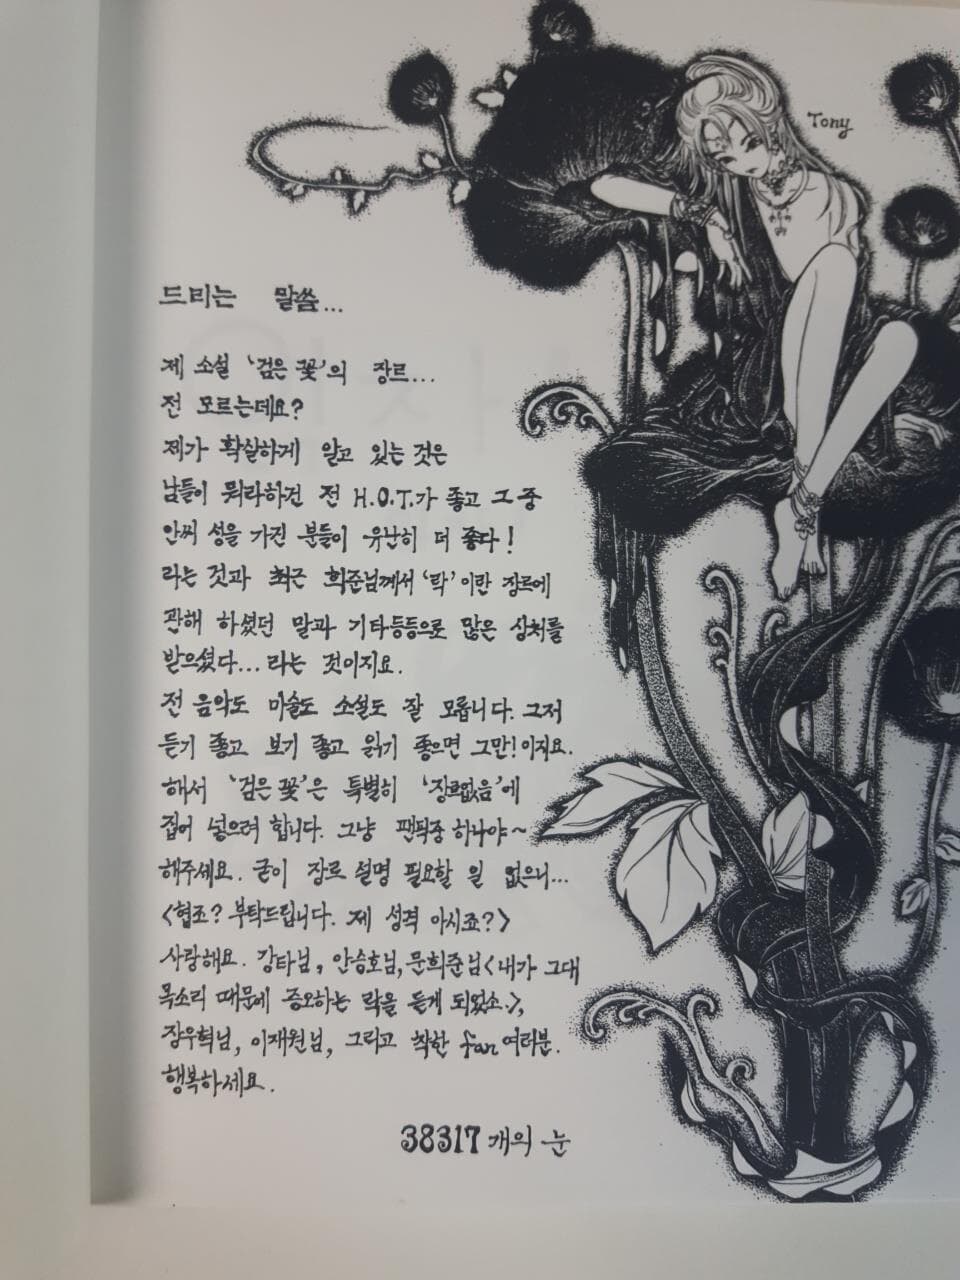 Tony
드리는 말씀...
제 소설 '검은 꽃'의 장르...
전 모르는데요?
제가 확실하게 알고 있는 것은
남들이 뭐라하건 전 H.O.T.가 좋고 그 중
안씨 성을 가진 분들이 유난히 더 좋다!
라는 것과 최근 희준님께서 '락'이란 장르에
관해 하셨던 말과 기타등등으로 많은 상처를
받으셨다... 라는 것이지요.
전 음악도 미술도 소설도 잘 모릅니다. 그저
듣기 좋고 보기 좋고 읽기 좋으면 그만!이지요.
해서 '검은 꽃'은 특별히 '장르없음'에
집어 넣으려 합니다. 그냥 팬픽중 하나야~
해주세요. 굳이 장르 설명 필요할 일 없으니...
<협조? 부탁드립니다. 제 성격 아시죠?>
사랑해요. 강타님, 안승호님, 문희준님<내가 그대
목소리 때문에 증오하는 락을 듣게 되었소.>,
장우혁님, 이재원님, 그리고 착한 fan여러분.
행복하세요.
38317 개의 눈